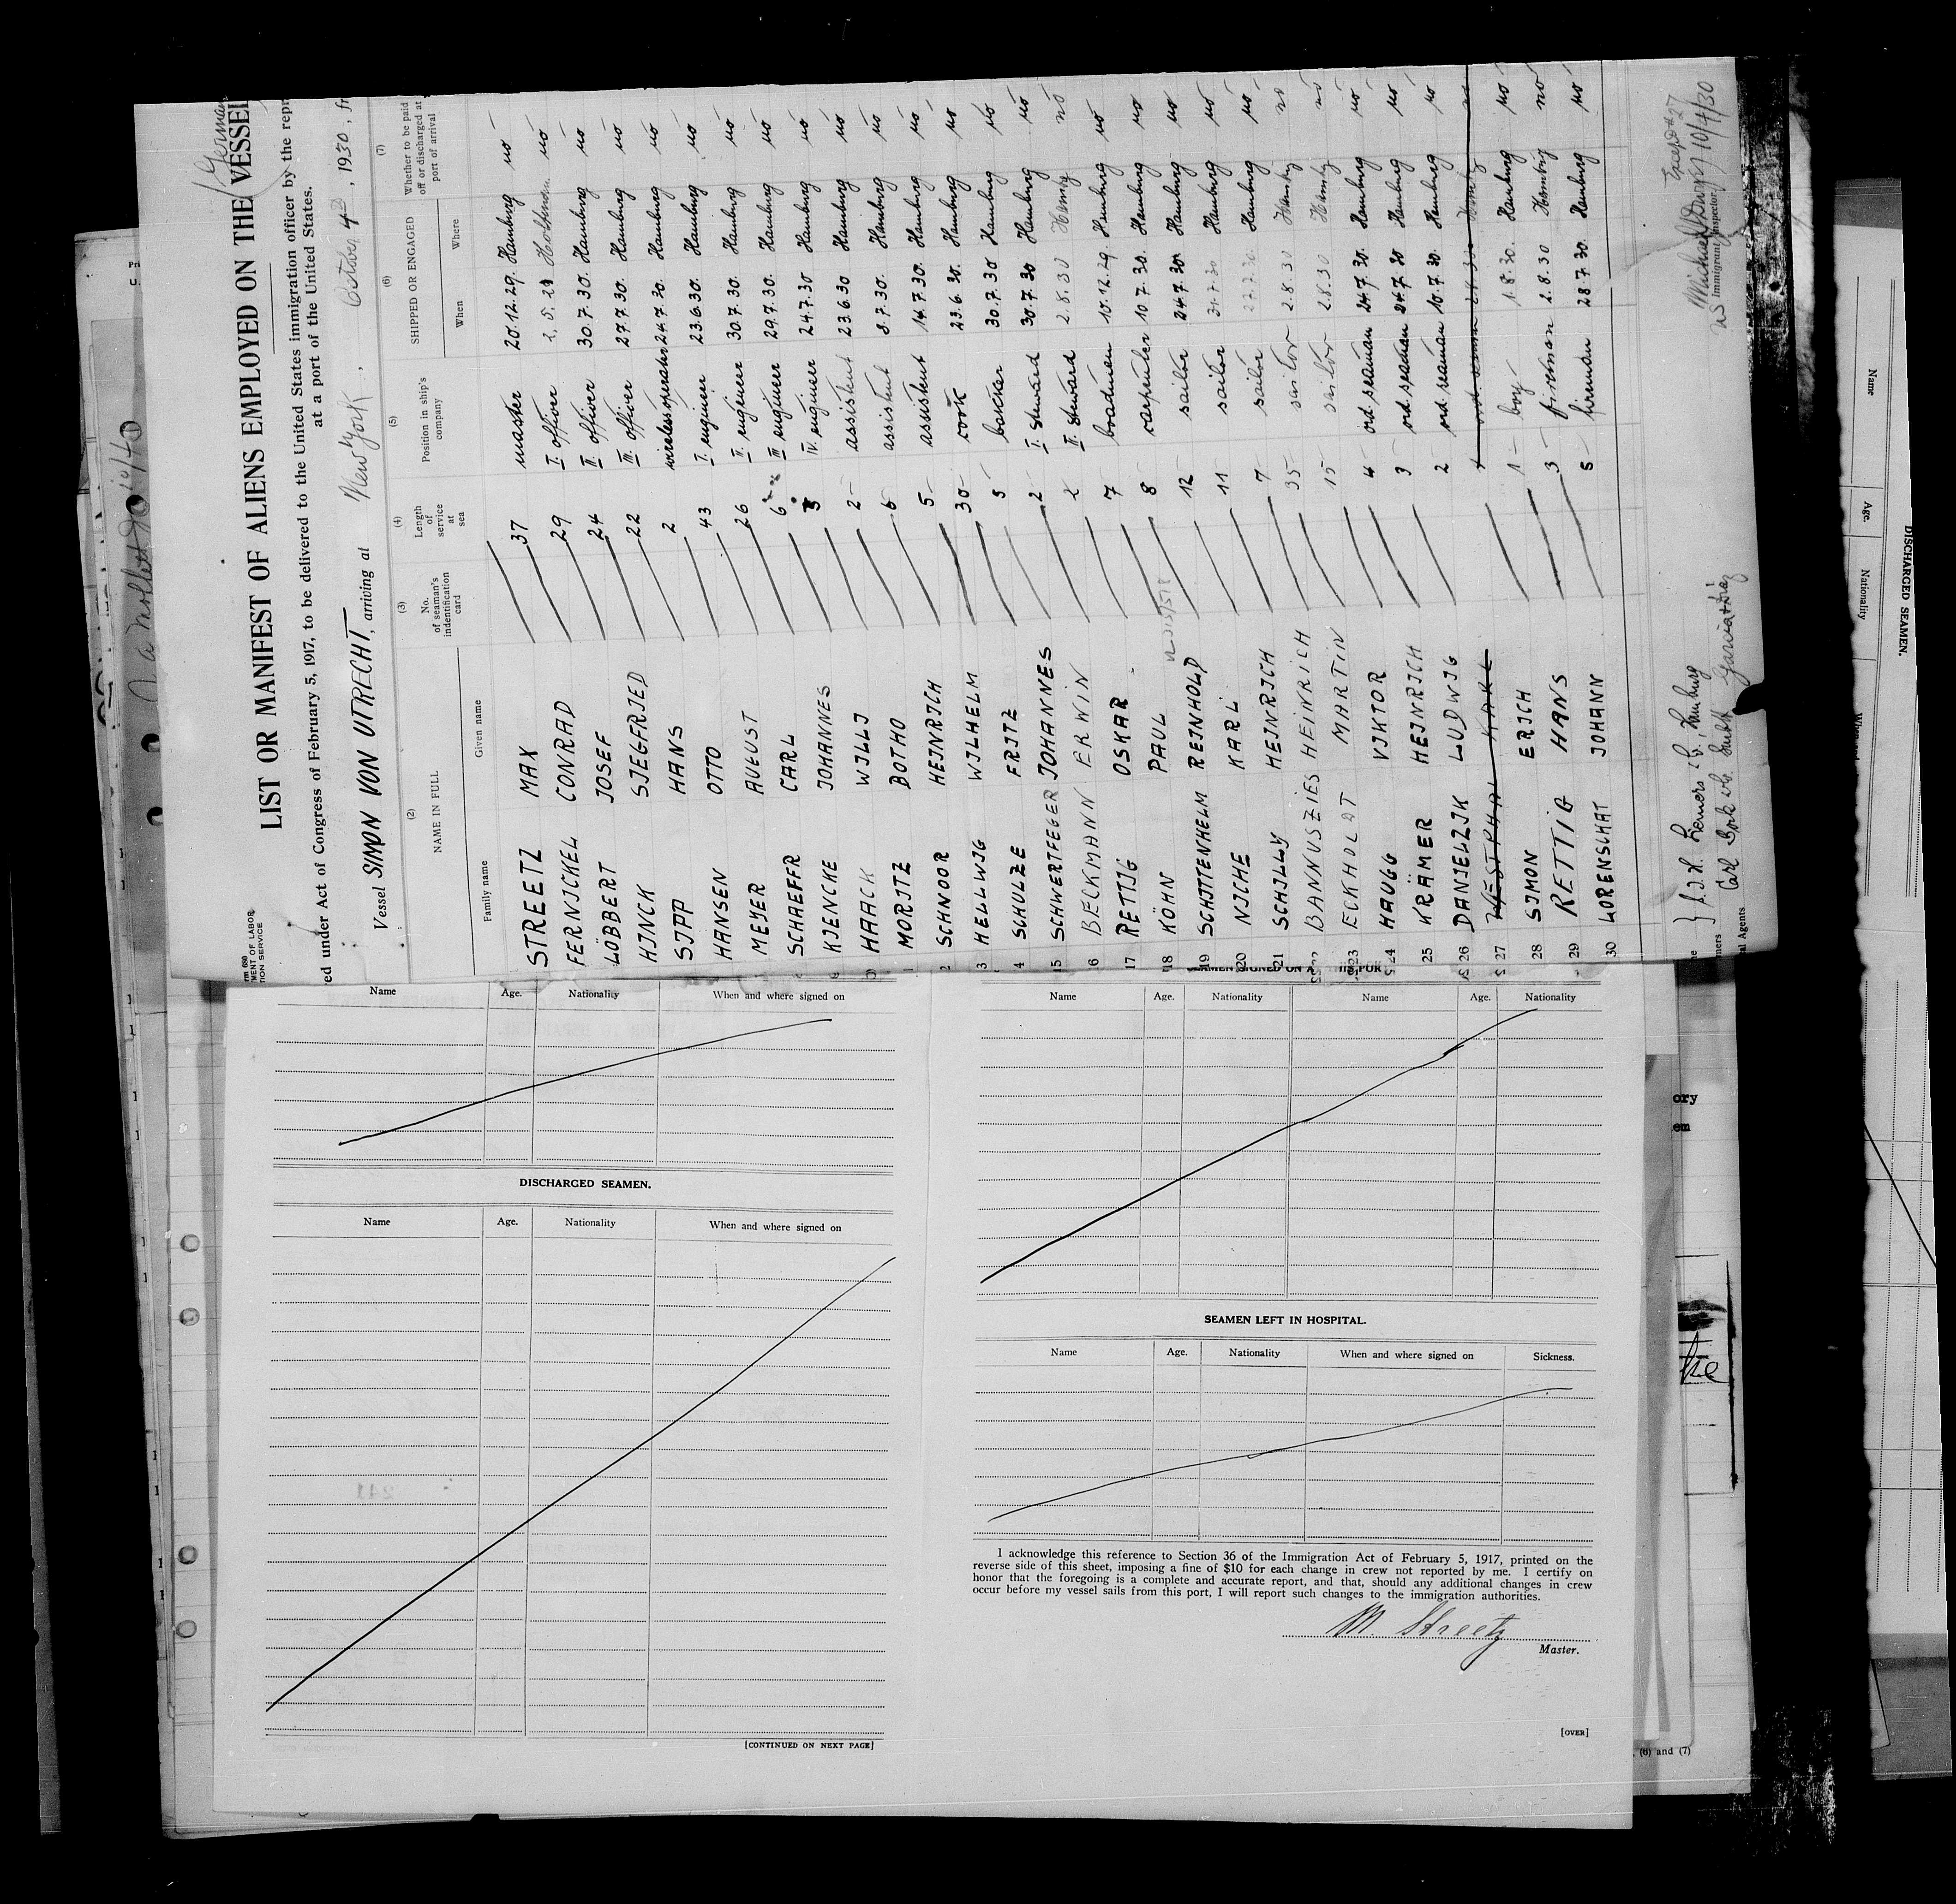 LIST OR MANIFEST OF ALIENS EMPLOYED ON THE VESSEL
(German
rm 680
MENT OF LABOR
TION SERVICE
ed under Act of Congress of February 5, 1917, to be delivered to the United States immigration officer by the repr
at a port of the United States.
Vessel SIMON VON UTRECHT, arriving at New York, October 4th, 1930, fr
(2) (3) (4) (5) (6) (7)
NAME IN FULL No. of seaman's indentification card Length of service at sea Position in ship's company SHIPPED OR ENGAGED Whether to be paid off or discharged at port of arrival
Family name Given name When Where
STREETZ MAX 37 master 20.12.29. Hamburg no
FERNJCKEL CONRAD 29 I. officer 2.5.29 no
LÖBBERT JOSEF 24 II. officer 30.7.30. Hamburg no
HJNCK SJEGFRJED 22 III. officer 27.7.30. Hamburg no
SJPP HANS 2 wirelessoperator 24.7.30. Hamburg no
HANSEN OTTO 43 I. engineer 23.6.30. Hamburg no
MEYER AUGUST 26 II. engineer 30.7.30. Hamburg no
SCHAEFFR CARL 6 III engineer 29.7.30. Hamburg no
KJENCKE JOHANNES 3 IV. engineer 24.7.30 Hamburg no
HAACK WJLLJ 2 assistent 23.6.30 Hamburg no
MORJTZ BOTHO 6 assistent 8.7.30. Hamburg no
2 SCHNOOR HEJNRJCH 5 assistent 14.7.30. Hamburg no
3 HELLWJG WJLHELM 30 cook 23.6.30. Hamburg no
4 SCHULZE FRJTZ 5 backer 30.7.30 Hamburg no
15 SCHWERTFEGER JOHANNES 2 I. steward 30.7.30 Hamburg no
16 BECKMANN ERWIN 2 II. steward 2.8.30 Hambg no
17 RETTJG OSKAR 7 boadman 10.12.29. Hamburg no
18 KÖHN PAUL 8 carpenter 10.7.30. Hamburg no
19 SCHJTTENHELM REJNHOLD 12 sailor 24.7.30. Hamburg no
20 NJCHE KARL 11 sailor 31.7.30 Hamburg no
21 SCHJLLY HEJNRJCH 7 sailor 22.7.30 Hamburg no
22 BANNUSZIES HEINRICH 35 sailor 2.8.30 Hambg no
23 ECKHOLDT MARTIN 15 sailor 2.8.30 Hambg no
24 HAUGG VJKTOR 4 ord. seaman 24.7.30. Hamburg no
25 KRÄMER HEJNRJCH 3 ord. seaman 24.7.30 Hamburg no
26 DANJELZJK LUDWJG 2 ord. seaman 10.7.30. Hamburg no
27 WESTPHAL KARL 1 ord. seaman 2.8.30 Hambg no
28 SJMON ERJCH 1 boy 1.8.30. Hamburg no
29 RETTIG HANS 3 fireman 2.8.30 Hambg no
30 LORENSCHAT JOHANN 5 fireman 28.7.30 Hamburg no
Except #27
10/4/30
US Immigrant Inspector
Garcia & Diaz
l Agents
Name Age. Nationality When and where signed on
DISCHARGED SEAMEN.
Name Age. Nationality When and where signed on
[CONTINUED ON NEXT PAGE]
Name Age. Nationality Name Age. Nationality
SEAMEN LEFT IN HOSPITAL.
Name Age. Nationality When and where signed on Sickness.
I acknowledge this reference to Section 36 of the Immigration Act of February 5, 1917, printed on the
reverse side of this sheet, imposing a fine of $10 for each change in crew not reported by me. I certify on
honor that the foregoing is a complete and accurate report, and that, should any additional changes in crew
occur before my vessel sails from this port, I will report such changes to the immigration authorities.
M. Streetz
Master.
[OVER]
ory
em
, (6) and (7)
DISCHARGED SEAMEN.
Name Age. Nationality